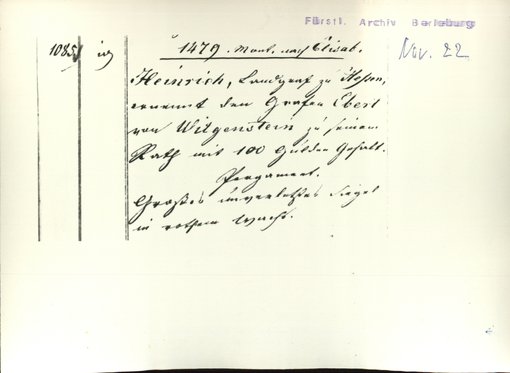 Fürstl. Archiv Berleburg
Nov. 22
1085
1479. Mont. nach Elisab.
Heinrich, Landgraf zu Hessen,
ernennt den Grafen Ebert
von Witgenstein zu seinem
Rath mit 100 Gulden Gehalt.
Pergament.
Großes unverletztes Siegel
in rothem Wachs.